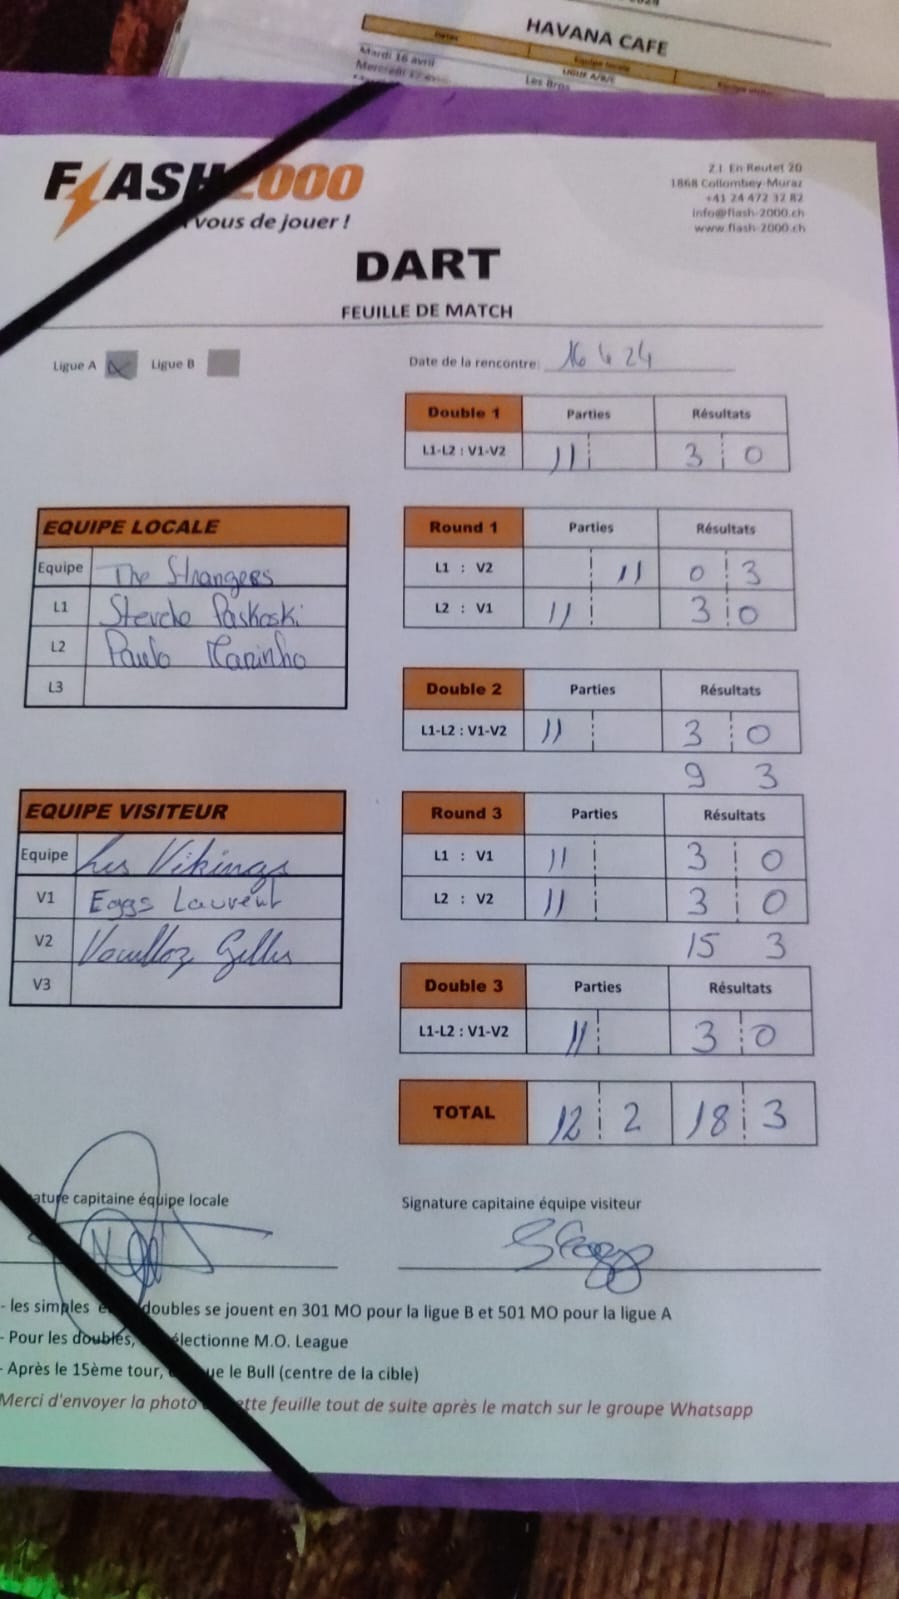 HAVANA CAFE
Dates Equipe locale
Mardi 16 avril LIGUE A/B/C
Mercredi 17 avril Les Bros
FLASH 2000
vous de jouer !
Z.I. En Reutet 20
1868 Collombey-Muraz
+41 24 472 32 82
info@flash-2000.ch
www.flash-2000.ch
DART
FEUILLE DE MATCH
Ligue A X Ligue B
Date de la rencontre: 16 4 24
Double 1 Parties Résultats
L1-L2 : V1-V2 II 3 0
EQUIPE LOCALE
Equipe The Strangers
L1 Stevche Paskoski
L2 Paulo Marinho
L3
Round 1 Parties Résultats
L1 : V2 II 0 3
L2 : V1 II 3 0
Double 2 Parties Résultats
L1-L2 : V1-V2 II 3 0
9 3
EQUIPE VISITEUR
Equipe Les Vikings
V1 Eggs Laurent
V2 Vouilloz Gilles
V3
Round 3 Parties Résultats
L1 : V1 II 3 0
L2 : V2 II 3 0
15 3
Double 3 Parties Résultats
L1-L2 : V1-V2 II 3 0
TOTAL 12 2 18 3
ature capitaine équipe locale
Signature capitaine équipe visiteur
- les simples doubles se jouent en 301 MO pour la ligue B et 501 MO pour la ligue A
- Pour les doubles, électionne M.O. League
- Après le 15ème tour, ue le Bull (centre de la cible)
Merci d'envoyer la photo ette feuille tout de suite après le match sur le groupe Whatsapp